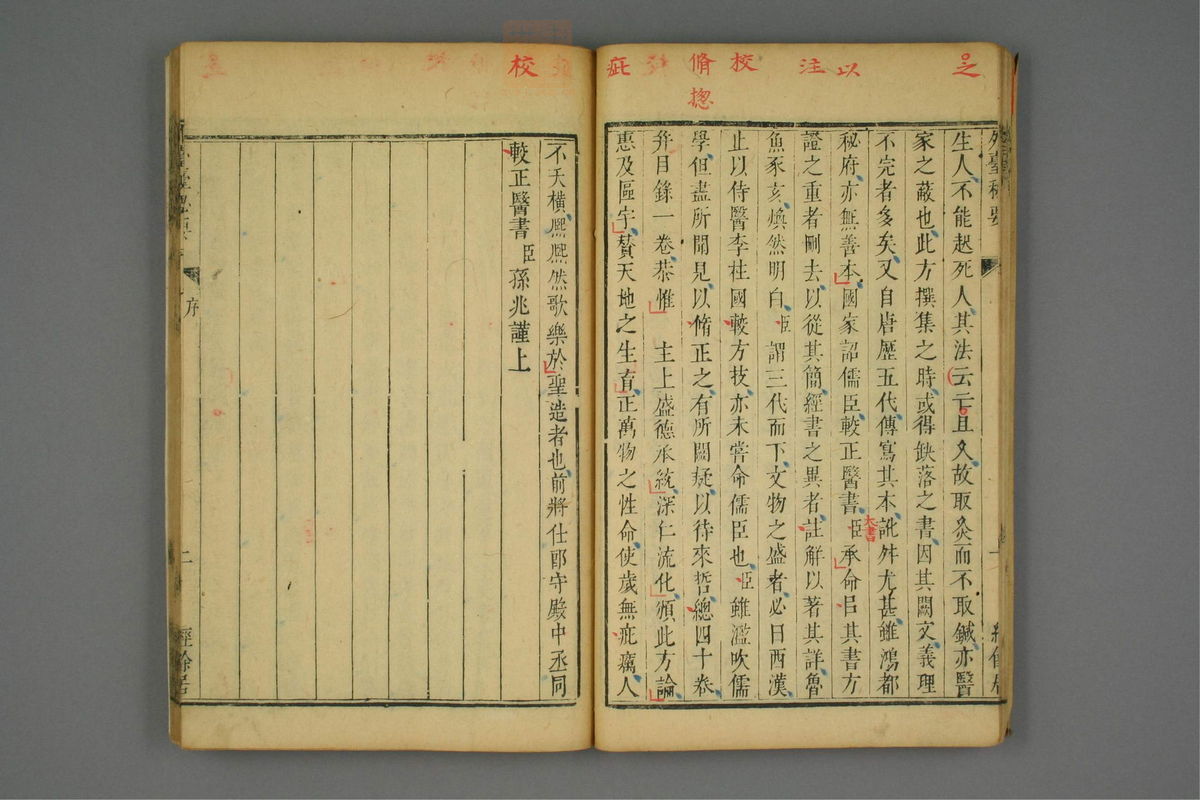 是 以 注 校 脩 揔 疵 校
外臺秘要
生人不能起死人其法云亡且久故取灸而不取鍼亦醫
家之蔽也此方撰集之時或得缺落之書因其闕文義理
不完者多矣又自唐歷五代傳寫其本訛舛尤甚雖鴻都
秘府亦無善本國家詔儒臣較正醫書臣承命㠯其書方
大書
證之重者刪去以從其簡經書之異者註解以著其詳魯
魚豕亥煥然明白臣謂三代而下文物之盛者必曰西漢
止以侍醫李柱國較方技亦未嘗命儒臣也臣雖濫吹儒
學但盡所聞見以脩正之有所闕疑以待來哲總四十卷
并目錄一卷恭惟 主上盛德承統深仁流化頒此方論
惠及區宇贊天地之生育正萬物之性命使歲無疵癘人
不夭橫熙熙然歌樂於聖造者也前將仕郎守殿中丞同
較正醫書臣孫兆謹上
序
二
經餘居